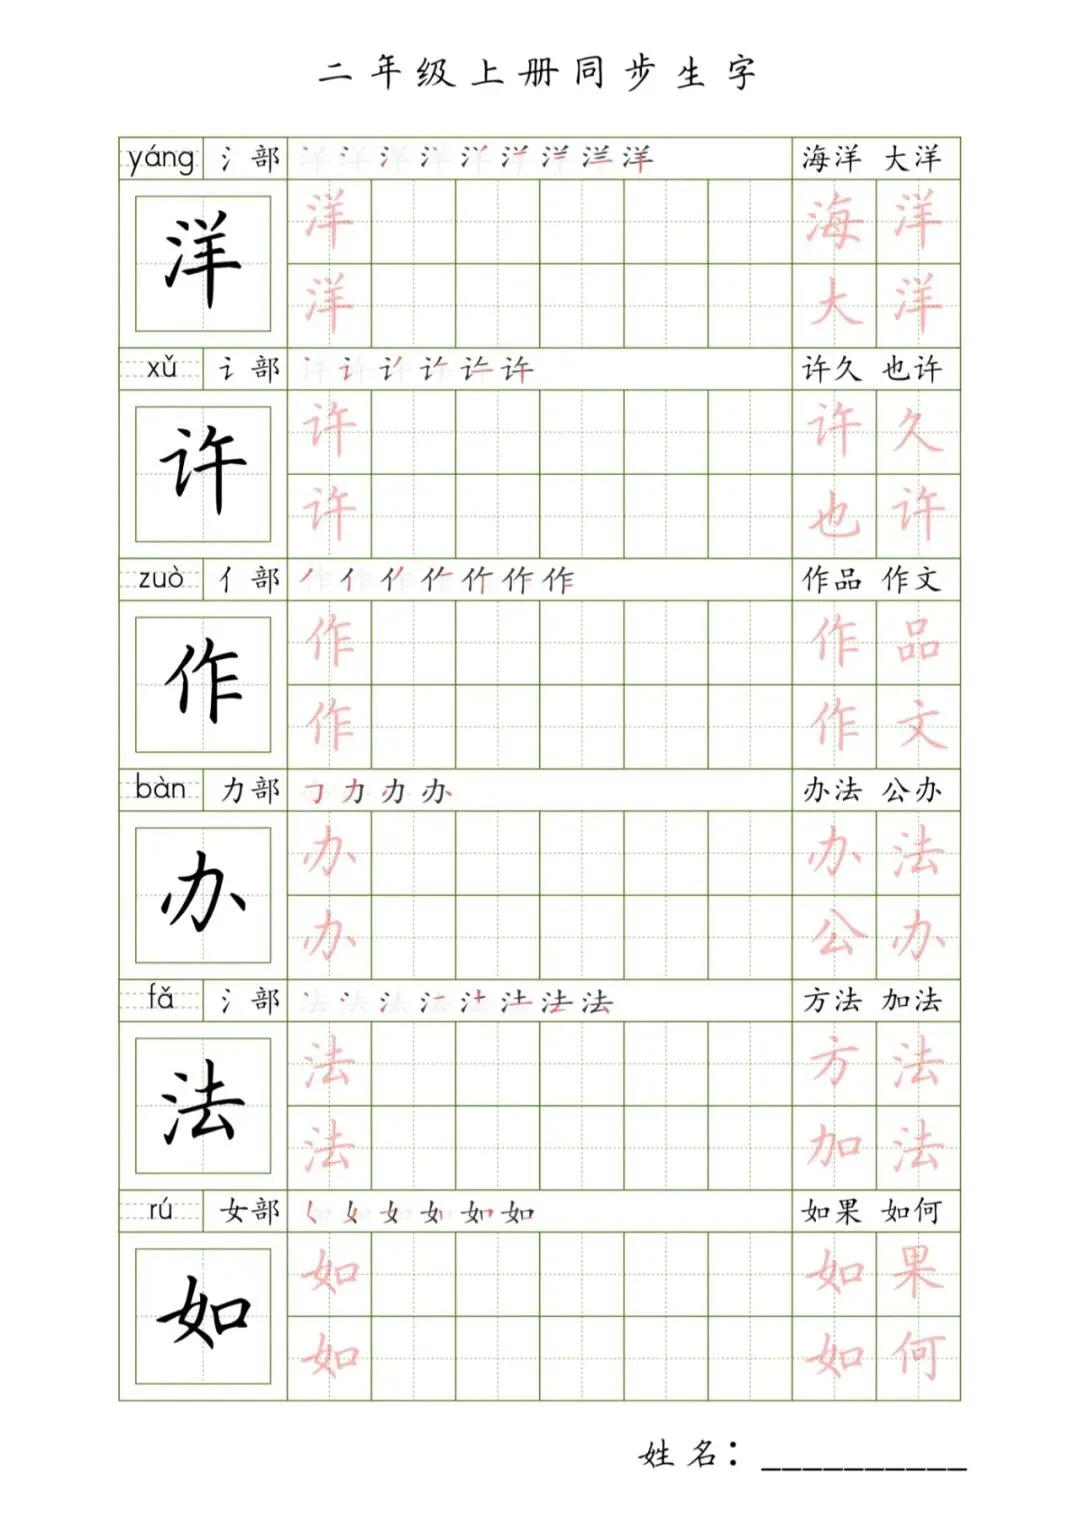 二年级上册同步生字
yáng 氵部 洋 海洋 大洋
洋 洋 海洋
洋 大洋
xǔ 讠部 许 许久 也许
许 许 许久
许 也许
zuò 亻部 丿 亻 作 作品 作文
作 作 作品
作 作文
bàn 力部 𠃌 力 办 办法 公办
办 办 办法
办 公办
fǎ 氵部 法 方法 加法
法 法 方法
法 加法
rú 女部 女 如 如果 如何
如 如 如果
如 如何
姓名：__________